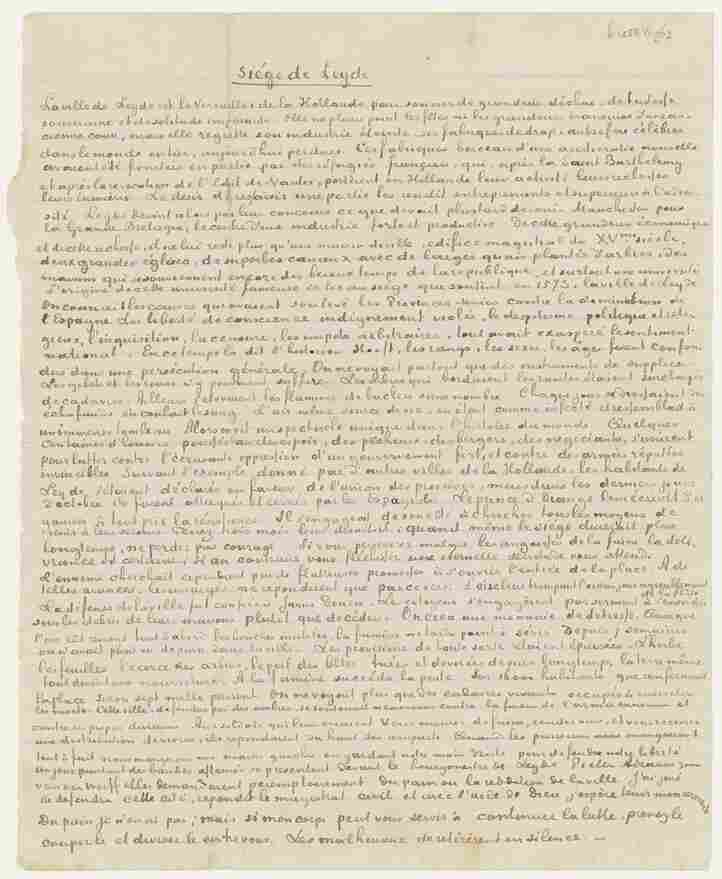 Siège de Leyde
La ville de Leyde est le Versailles de la Hollande, pour son air de grandeur déchue, de tristesse
souveraine et de solitude imposante. Elle ne pleure point les fêtes ni les grandeurs
aucune cour, mais elle regrette son industrie éteinte ses fabriques de drap, autrefois célèbres
dans le monde entier, aujourd'hui perdues. Ces fabriques berceau d'une accélération nouvelle
avaient été fondées en partie par des réfugiés français, qui, après la Saint Barthélemy
et après la révocation de l'Edit de Nantes, portèrent en Hollande leur activité leurs richesses
leurs lumières. Le désir de une patrie les rendit entreprenants et supérieurs à l'adver
sité. Leyde devint alors par leur concours ce que devait plus tard devenir Manchester pour
la Grande Bretagne, le centre d'une industrie forte et productive. De cette grandeur économique
et de cette richesse, il ne lui reste plus qu'une maison de ville, édifice magistral du XVme siècle,
deux grandes églises, de superbes canaux avec de larges quais plantés d'arbres, des
maisons qui se souviennent encore des beaux temps de la république, et surtout une université
L'origine de cette université fameuse est liée au siège que soutint en 1573, la ville de Leyde
On connait les causes qui avaient soulevé les Provinces-Unies contre la domination de
l'Espagne. La liberté de conscience indignement violée, le despotisme politique et reli
gieux, l'inquisition, la censure, les impôts arbitraires, tout avait exaspéré le sentiment
national. En ce temps là dit l'historien Hooft, les rangs, les sexes, les âges furent confon
dus dans une persécution générale. On ne voyait partout que des instruments de supplice
Les gibets et les roues n'y pouvaient suffire. Les arbres qui bordaient les routes étaient surchargés
de cadavres. Ailleurs s'élevaient les flammes de bûchers sans nombre. Chaque jour se dressaient des
échafauds où coulait le sang. L'air même source de vie, en était comme infecté et ressemblait à
un immense tombeau. Alors on vit un spectacle unique dans l'histoire du monde. Quelques
centaines d'hommes des pêcheurs, des bergers, des négociants, s'unirent
pour lutter contre l'écrasante oppression d'un gouvernement fort, et contre des armées réputées
invincibles. Suivant l'exemple donné par d'autres villes de la Hollande, les habitants de
Leyde, s'étaient déclarés en faveur de l'union des provinces, mais dans les derniers jours
d'octobre ils furent attaqués et cernés par les Espagnols. Le prince d'Orange
à tout prix la résistance. Il s'engageait de son côté à chercher tous les moyens de
venir à leur secours. Tenez trois mois leur disait-il; quand même le siège durerait plus
longtemps, ne perdez pas courage. Si vous persistez malgré les angoisses de la faim, la déli
vrance est certaine, si au contraire vous faiblissez une éternelle servitude vous attend.
L'ennemi cherchait cependant par de flatteuses promesses à s'ouvrir l'entrée de la place. A de
telles avances, les assiégés ne répondirent que par ces mots: L'oiseleur trompant l'oiseau, joue agréablement
de la flûte.
La défense de la ville fut confiée à Janus Douza. Les citoyens s'engagèrent par serment à s'ensevelir
sous les débris de leurs maisons plutôt que de céder. On créa une monnaie de détresse.
les bouches inutiles, la famine ne tarda point à sévir. Depuis 7 semaines
on n'avait point vu de pain dans la ville. Les provisions de toute sorte étaient épuisées. L'herbe
les feuilles l'écorce des arbres, la peau des bêtes tuées et dévorées depuis longtemps, la terre même
tout devint une nourriture. A la famine succéda la peste. Sur habitants que renfermait
la place six ou sept mille périrent. On ne voyait plus que des cadavres vivants occupés à ensevelir
les morts. Cette ville, défendue par des ombres, se soutenait néanmoins contre la fureur de l'armée ennemie et
contre sa propre Aux soldats qui leur criaient Vous mourez de faim, rendez-vous, et vous recevrez
une distribution de vivres, ils répondaient du haut des remparts. Quand les provisions nous manqueront
tout à fait nous mangerons nos mains gauches en gardant notre main droite pour défendre notre liberté
Un jour pourtant des bandes affamées se présentent devant le bourgmestre de Leyde Pieter Adriaanszoon
van der Werff elles demandaient péremptoirement du pain ou la reddition de la ville. J'ai juré
de défendre cette cité, répondit le magistrat civil et avec l'aide de Dieu, j'espère tenir mon serment
Du pain je n'en ai pas; mais si mon corps peut vous servir à continuer la lutte, prenez le
coupez le et divisez le entre vous. Les malheureux se retirèrent en silence. —